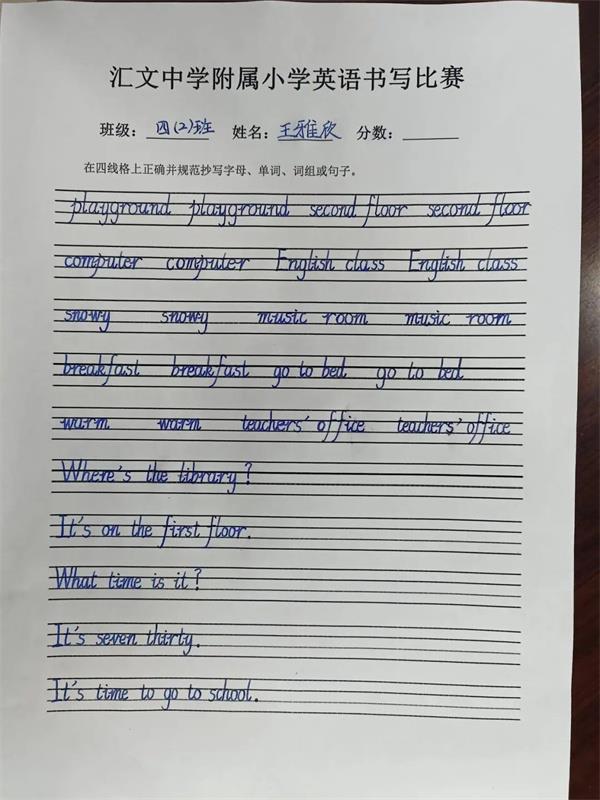 汇文中学附属小学英语书写比赛
班级：四(2)班 姓名：王雅欣 分数：
在四线格上正确并规范抄写字母、单词、词组或句子。
playground playground second floor second floor
computer computer English class English class
snowy snowy music room music room
breakfast breakfast go to bed go to bed
warm warm teachers' office teachers' office
Where's the library?
It's on the first floor.
What time is it?
It's seven thirty.
It's time to go to school.